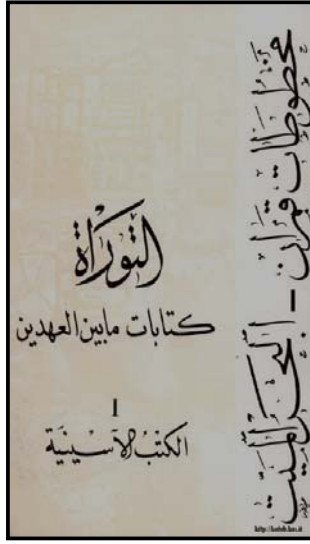 مخطوطات قمران - البحر الميت
التوراة
كتابات ما بين العهدين
I
الكتب الأسينية